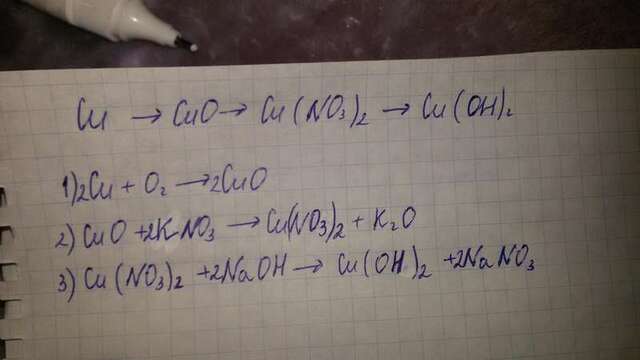 Cu → CuO → Cu(NO₃)₂ → Cu(OH)₂
1) 2Cu + O₂ → 2CuO
2) CuO + 2KNO₃ → Cu(NO₃)₂ + K₂O
3) Cu(NO₃)₂ + 2NaOH → Cu(OH)₂ + 2NaNO₃